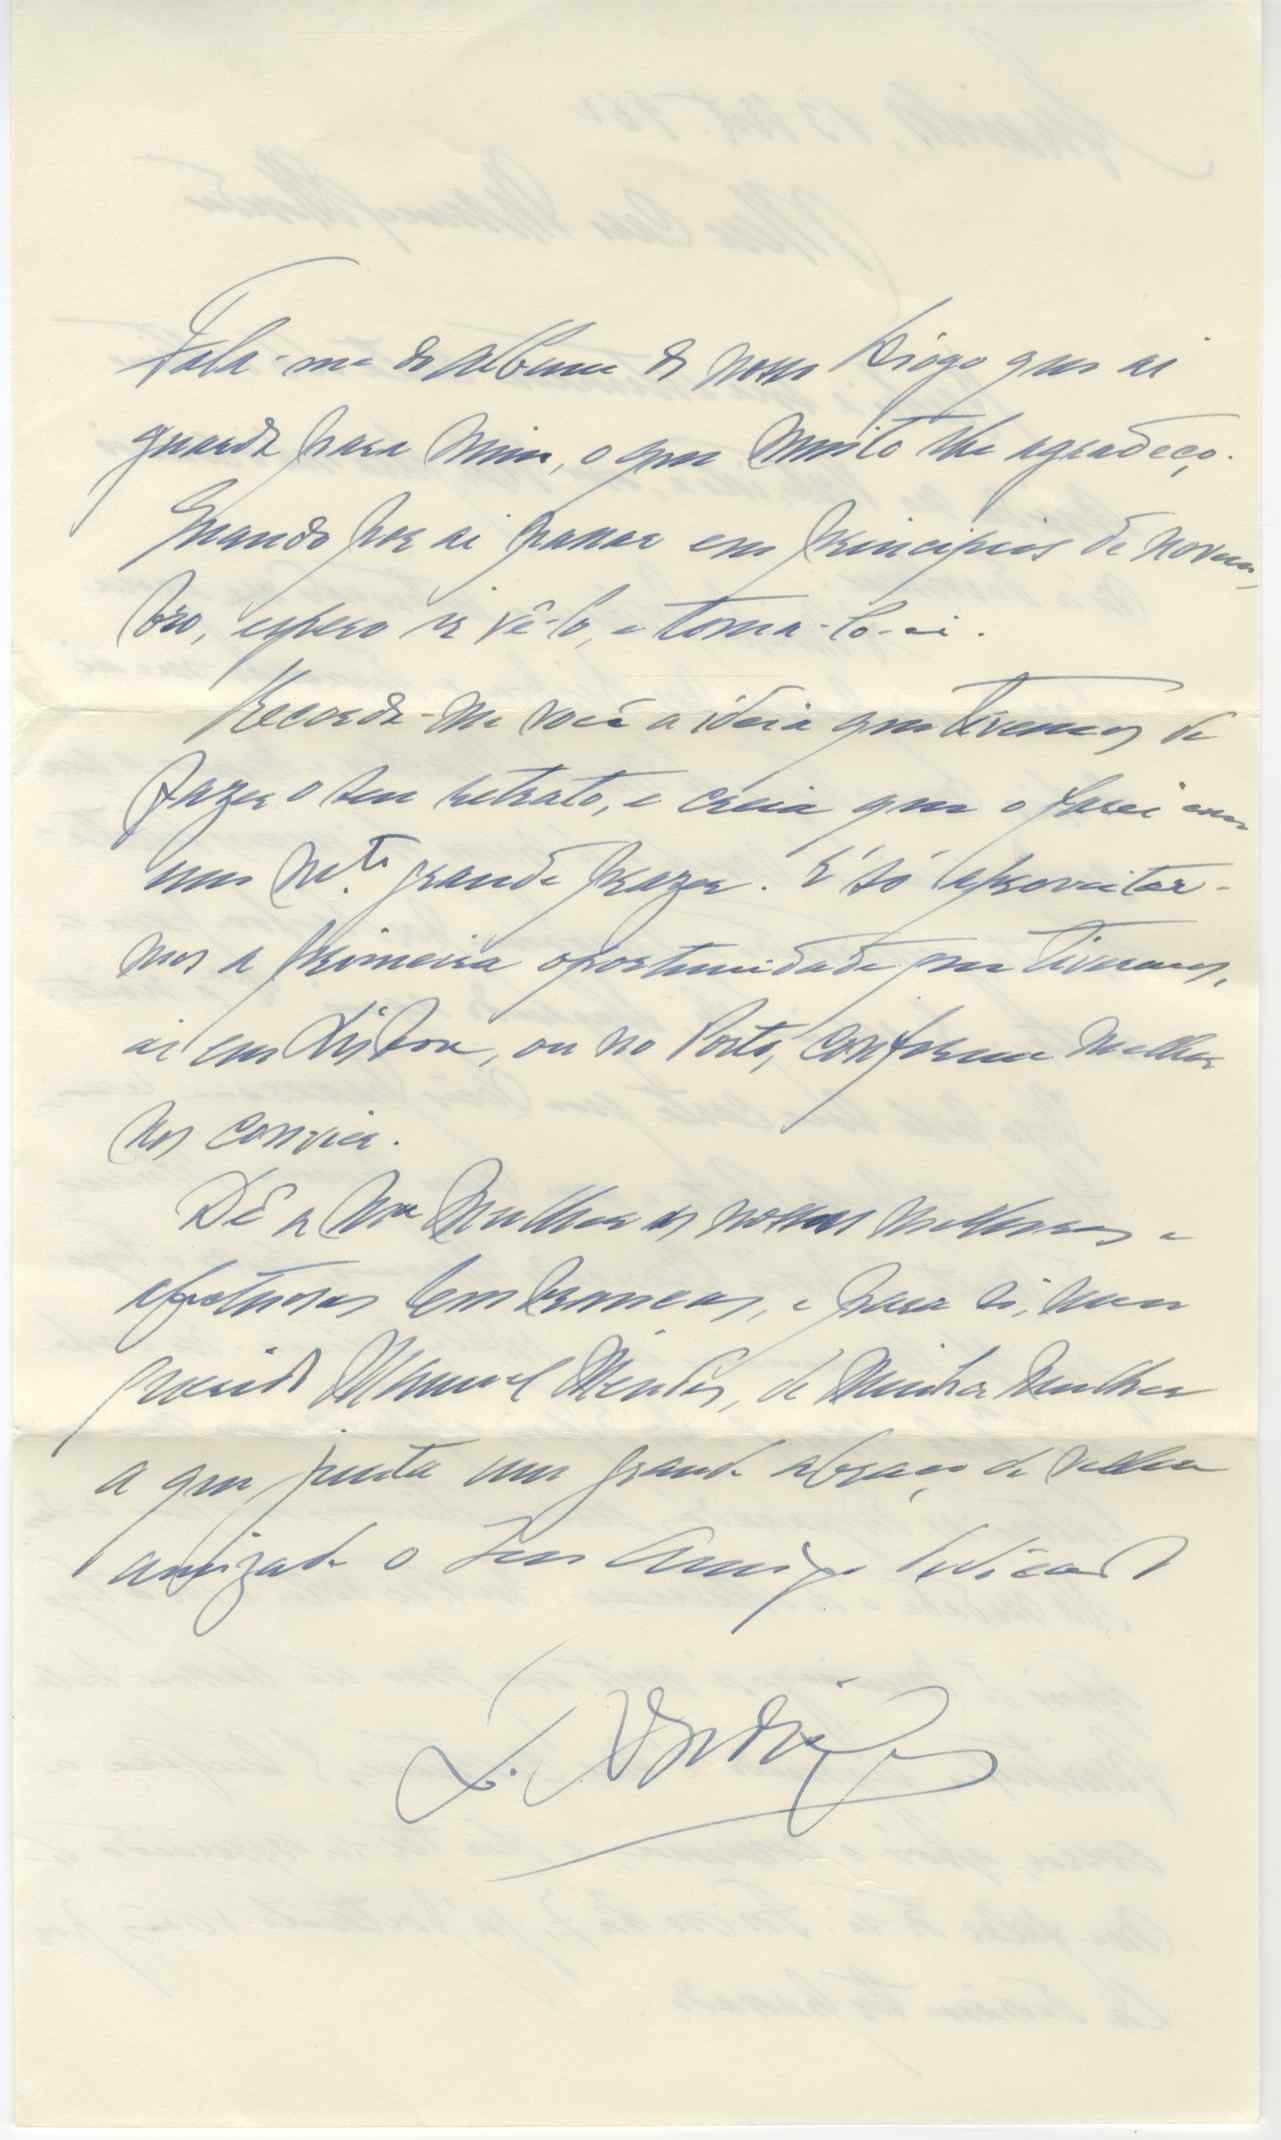 Fala-me do album do nosso Diogo que aí
guarda para mim, o que muito lhe agradeço.
Quando por aí passar em principios de novem-
bro, espero ir vê-lo, e toma-lo-ei.
Recorda-me você a ideia que tivemos de
fazer o seu retrato, e creia que o farei com
um m.to grande prazer. É só aproveitar-
mos a primeira oportunidade que tivermos,
aí em Lisboa, ou no Porto, conforme melhor
nos convier.
Dê a sua Mulher as nossas melhores e
afectuosas lembranças, e para si, meu
querido Manuel Mendes, de minha Mulher
a que junta um grande abraço de velha
amizade o seu Amigo dedicado